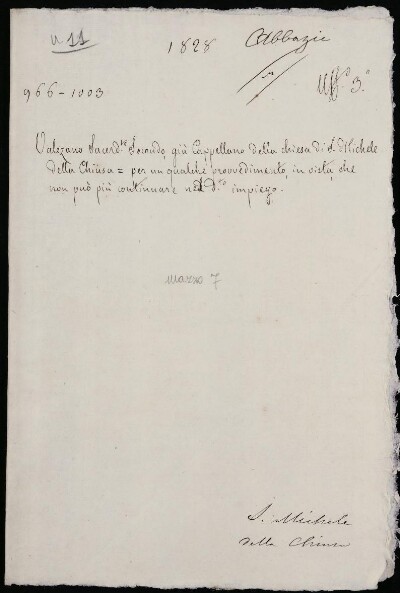 n. 11
1828
Abbazie
Uff.° 3.°
966-1003
Valezano Sacerd.te Secondo, già Cappellano della chiesa di S. Michele
della Chiusa = per un qualche provvedimento, in vista, che
non può più continuare nel d.to impiego.
mazzo 7
S. Michele
della Chiusa